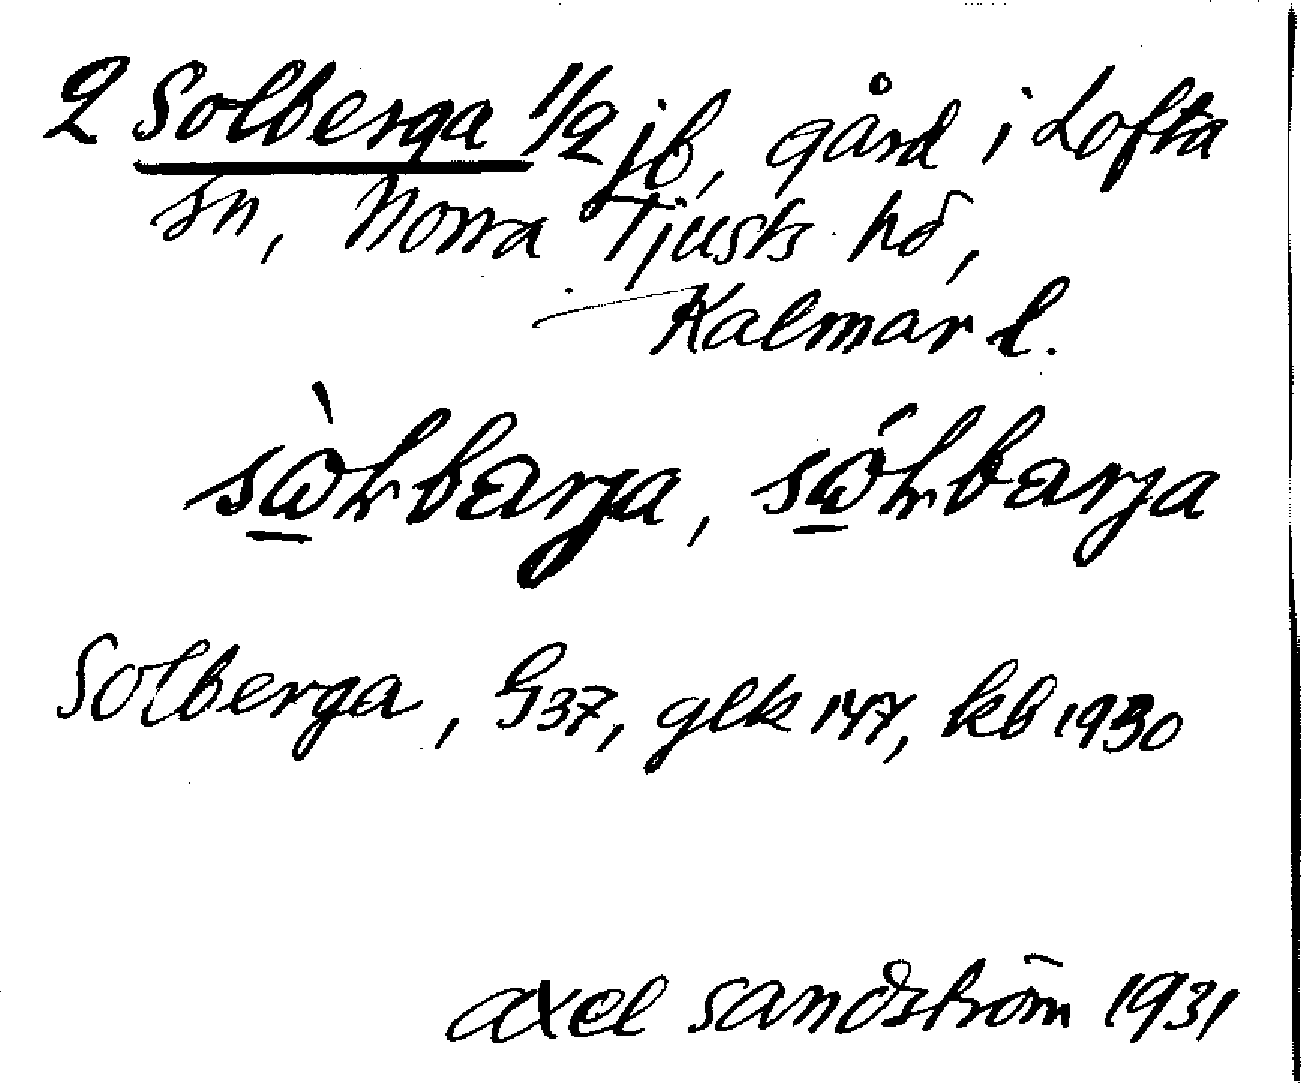 2 Solberga 1/2 jb, gård i Lofta
sn, Norra Tjusts hd,
Kalmar l.
sὼ̲lbarja, sώ̲lbarja
Solberga, G37, glk 147, kb 1930
Axel Sandström 1931